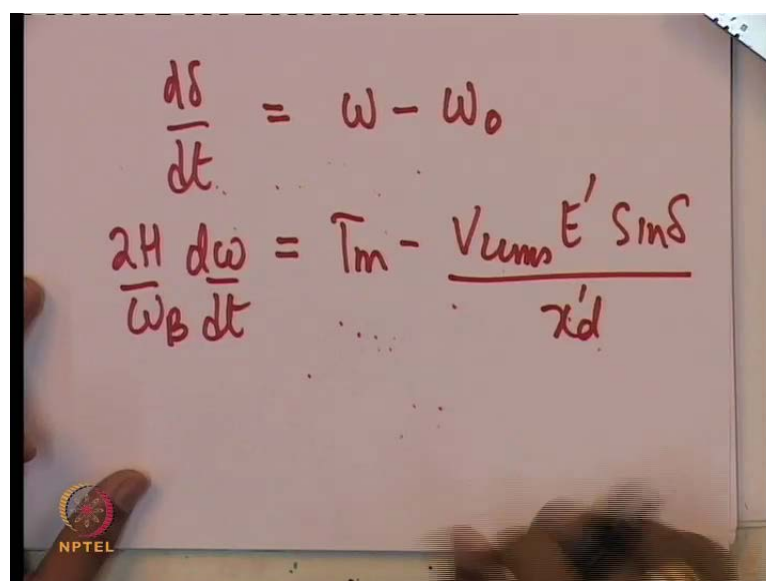 dδ/dt = ω - ω₀
2H/ω_B dω/dt = Tm - V_LLrms E' Sinδ / x'd
NPTEL